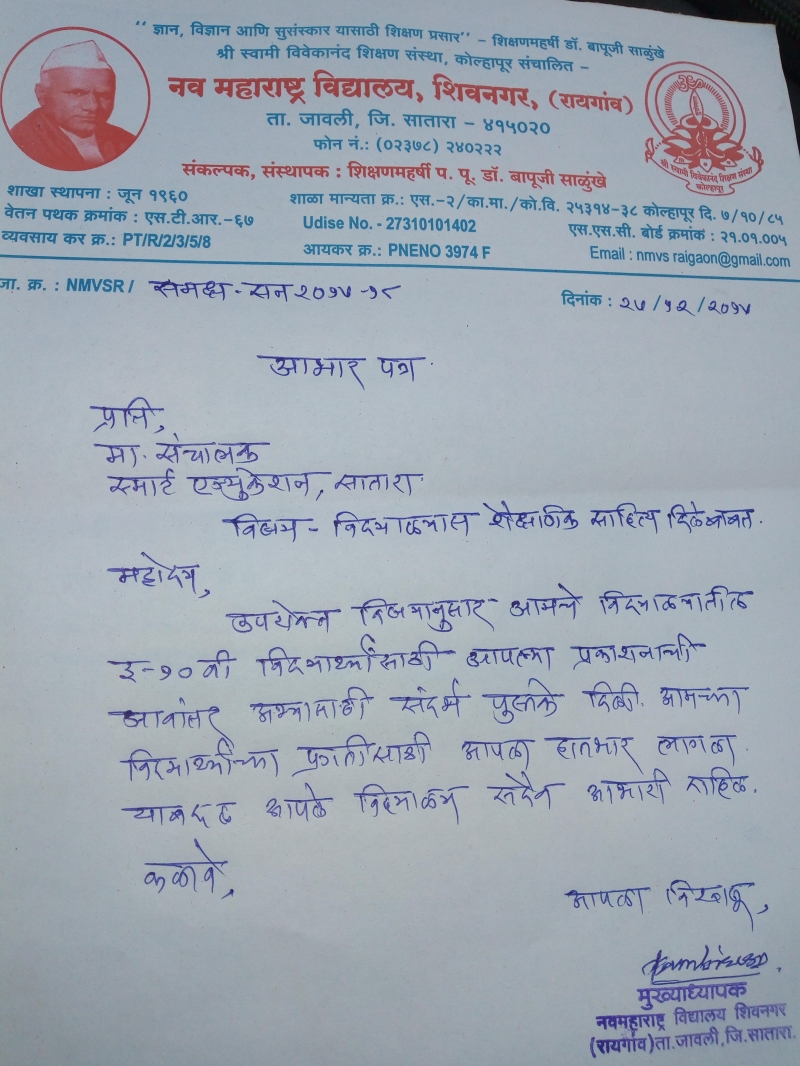 “ ज्ञान, विज्ञान आणि सुसंस्कार यासाठी शिक्षण प्रसार” – शिक्षणमहर्षी डॉ. बापूजी साळुंखे
श्री स्वामी विवेकानंद शिक्षण संस्था, कोल्हापूर संचालित –
नव महाराष्ट्र विद्यालय, शिवनगर, (रायगांव)
ता. जावली, जि. सातारा – ४१५०२०
फोन नं.: (०२३७८) २४०२२२
श्री स्वामी विवेकानंद शिक्षण संस्था
कोल्हापूर
संकल्पक, संस्थापक : शिक्षणमहर्षी प. पू. डॉ. बापूजी साळुंखे
शाखा स्थापना : जून १९६०
शाळा मान्यता क्र.: एस.–२/का.मा./को.वि. २५३१४–३८ कोल्हापूर दि. ७/१०/८५
वेतन पथक क्रमांक : एस.टी.आर.–६७
Udise No. - 27310101402
एस.एस.सी. बोर्ड क्रमांक : २१.०१.००५
व्यवसाय कर क्र.: PT/R/2/3/5/8
आयकर क्र.: PNENO 3974 F
Email : nmvs raigaon@gmail.com
जा. क्र. : NMVSR / समक्ष - सन २०१७-१८
दिनांक : २७/१२/२०१७
आभार पत्र
प्रति,
मा. संचालक
स्मार्ट एज्युकेशन, सातारा
विषय - विद्यालयास शैक्षणिक साहित्य दिलेबाबत.
महोदय,
उपरोक्त विषयानुसार आमचे विद्यालयातील
इ-१०वी विद्यार्थ्यांसाठी आपल्या प्रकाशनाची
अवांतर अभ्यासाठी संदर्भ पुस्तके दिली. आमच्या
विद्यार्थ्यांच्या प्रगतीसाठी आपला हातभार लागला.
याबद्दल आपले विद्यालय सदैव आभारी राहिल.
कळावे,
आपला विश्वासू,
मुख्याध्यापक
नवमहाराष्ट्र विद्यालय शिवनगर
(रायगांव)ता.जावली,जि.सातारा.